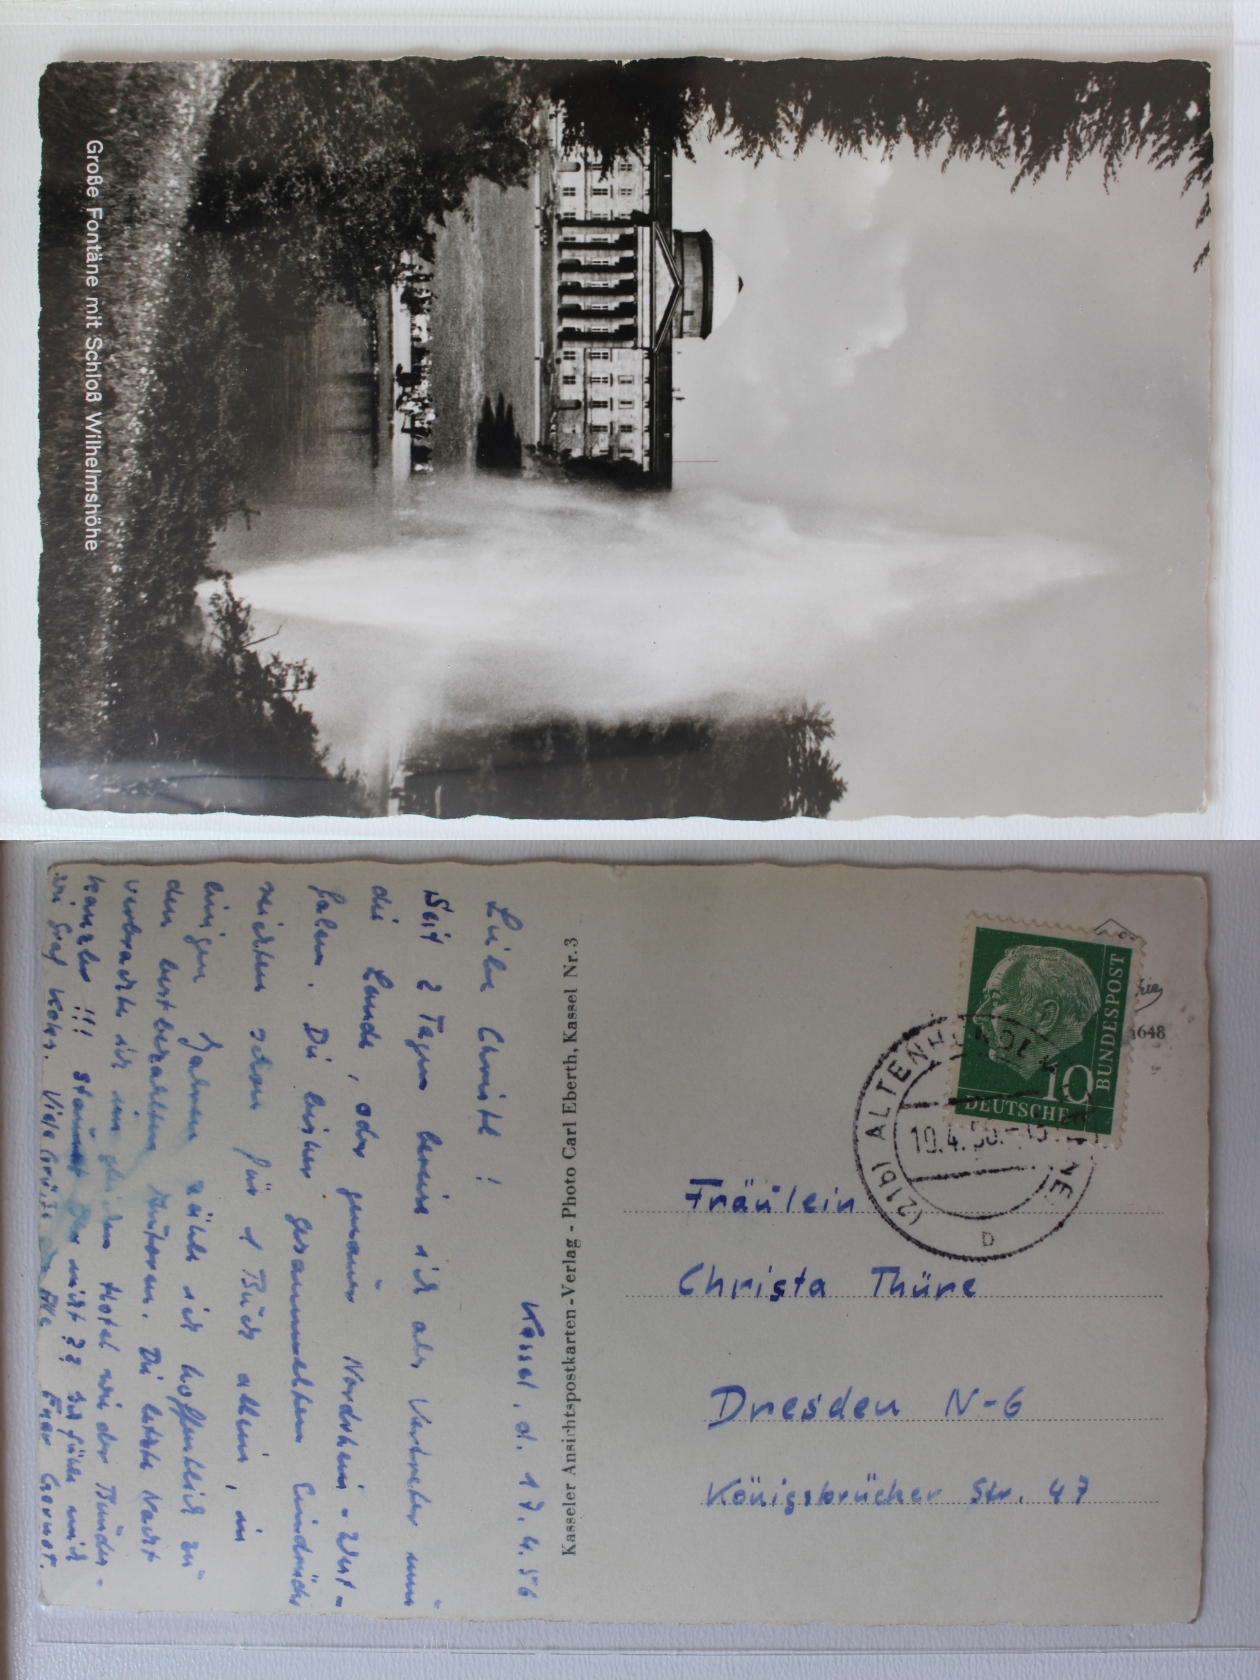 Große Fontäne mit Schloß Wilhelmshöhe
Kassel, d. 17.4.56
Liebe Christl!
Seit 2 Tagen bereise ich als Vertreter nun
die Lande, oder genauer Nordrhein-West-
falen. Die bisher gesammelten Eindrücke
reichten schon für 1 Buch allein, in
einigen Jahren zähle ich hoffentlich zu
den bestbezahlten Autoren. Die letzte Nacht
verbrachte ich im gleichen Hotel wie der Bundes-
kanzler!!! Staunst Du nicht?? Ich fühle mich
wie Graf Koks. Viele Grüße an Alle Euer Gernot.
Kasseler Ansichtspostkarten-Verlag - Photo Carl Eberth, Kassel Nr. 3
1648
DEUTSCHE
BUNDESPOST
10
(21b) ALTENH
10.4.56
NE
b
Fräulein
Christa Thüre
Dresden N-6
Königsbrücker Str. 47